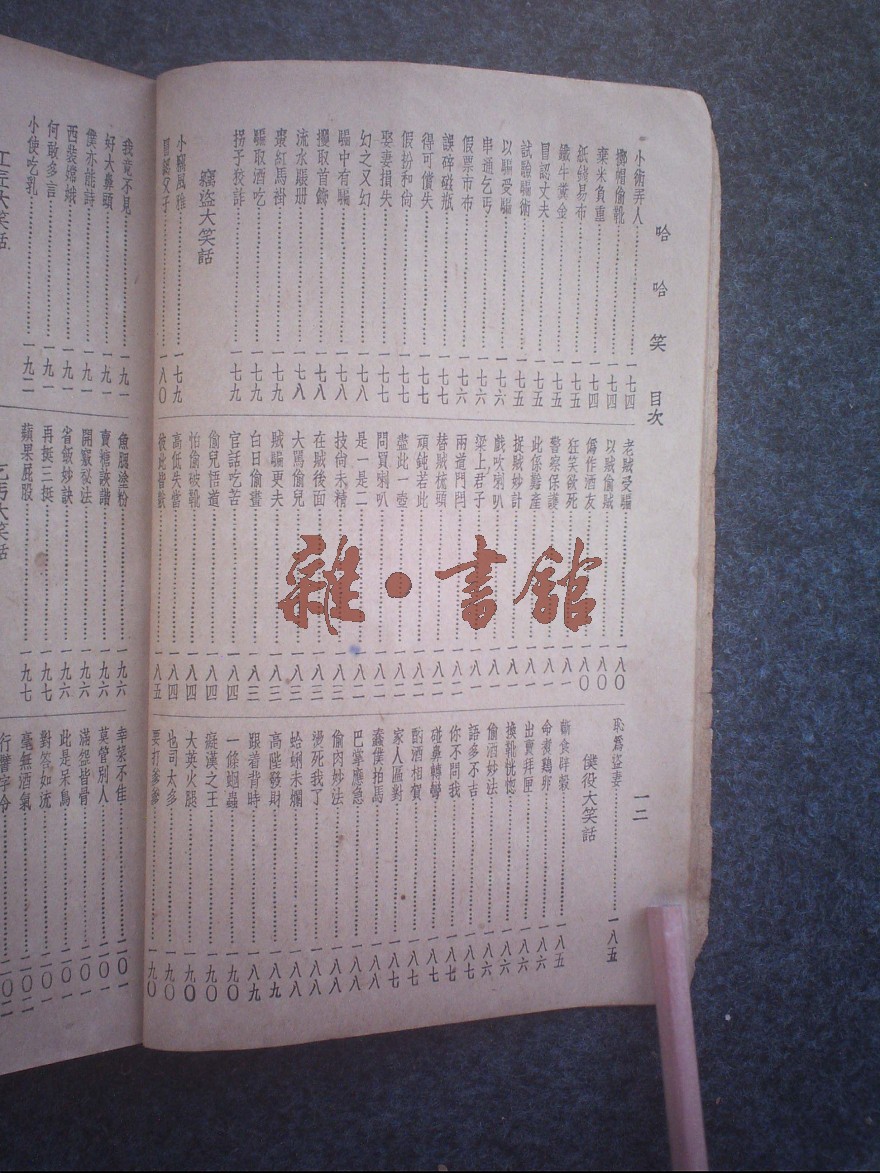 哈哈笑 目次
一二
小術弄人 一七四
擲帽偷靴 一七四
棄米負重 一七四
紙錢易布 一七五
鐵牛糞金 一七五
冒認丈夫 一七五
試驗騙術 一七五
以騙受騙 一七六
串通乞丐 一七六
假票市布 一七六
誤碎磁瓶 一七七
得可償失 一七七
假扮和尚 一七七
娶妻損失 一七七
幻之又幻 一七八
騙中有騙 一七八
攫取首飾 一七八
流水賬册 一七八
棗紅馬褂 一七九
騙取酒吃 一七九
拐子狡詐 一七九
竊盜大笑話
小竊風雅 一七九
冒認父子 一八〇
老賊受騙 一八〇
以賊偷賊 一八〇
偽作酒友 一八〇
狂笑欲死 一八一
警察保護 一八一
此係黔產 一八一
捉賊妙計 一八一
戲吹喇叭 一八一
梁上君子 一八一
兩道門閂 一八二
替賊梳頭 一八二
頑鈍若此 一八二
盡此一壺 一八二
問買喇叭 一八二
是一是二 一八二
技尚未精 一八三
在賊後面 一八三
大罵偷兒 一八三
賊騙更夫 一八三
白日偷畫 一八三
官話吃苦 一八四
偷兒悟道 一八四
怕偷破靴 一八四
高低失當 一八四
彼此皆獃 一八五
恥爲盜妻 一八五
僕役大笑話
蘄食辟穀 一八五
命煮鷄卵 一八六
出賣拜匣 一八六
換靴恍惚 一八六
偷酒妙法 一八六
語多不吉 一八七
你不問我 一八七
碰鼻轉彎 一八七
酌酒相賀 一八七
家人區對 一八七
蠢僕拍馬 一八八
巴掌應急 一八八
偷肉妙法 一八八
燙死我了 一八八
蛤蜊未爛 一八八
高陞發財 一八九
跟着背時 一八九
一條蛔蟲 一九〇
癡漢之王 一九〇
大英火腿 一九〇
也司太多 一九〇
要打爹爹 一九〇
我竟不見 一九一
好大鼻頭 一九一
僕亦能詩 一九一
西裝嫦娥 一九一
何敢多言 一九一
小使吃乳 一九二
工匠大笑話
魚腮塗粉 一九六
賣糖詼諧 一九六
開竅祕法 一九六
省飯妙訣 一九六
再挺三挺 一九七
蘋果屁股 一九七
乞丐大笑話
幸菜不佳 二〇一
莫管別人 二〇一
滿盤皆骨 二〇一
此是呆鳥 二〇一
對答如流 二〇一
毫無酒氣 二〇二
行嚮字令 二〇二
雜·書館